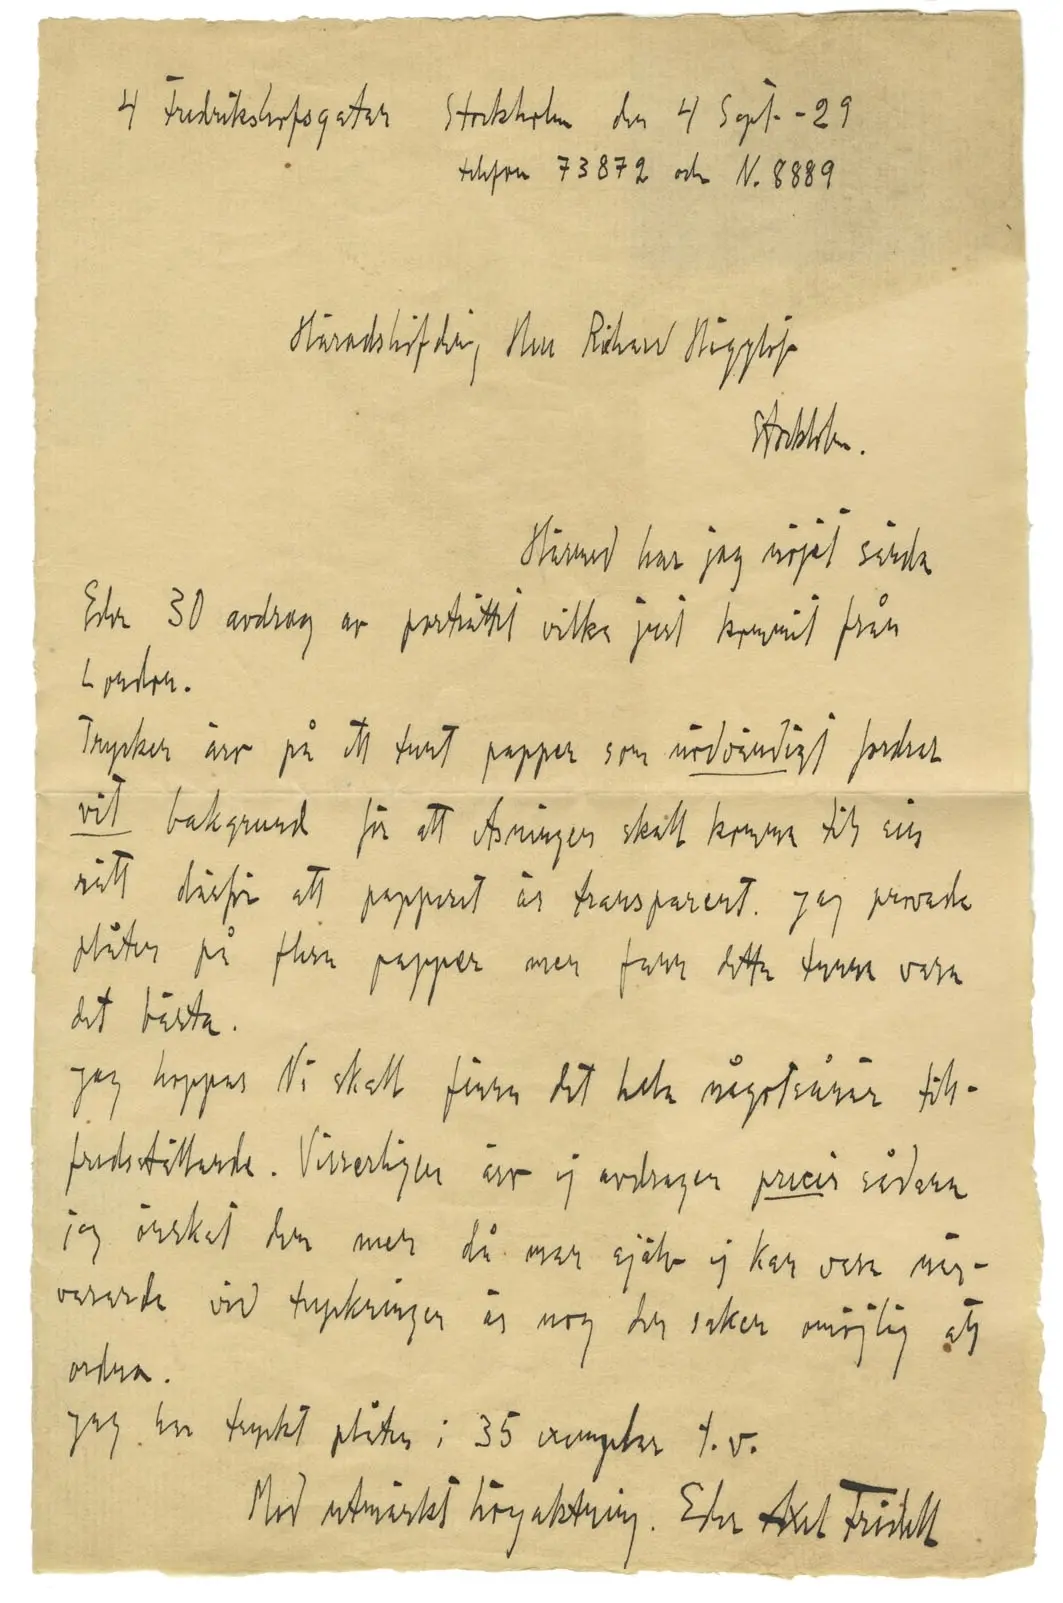 4 Fredrikshofsgatan Stockholm den 4 Sept. -29
telefon 73872 och N. 8889
Häradshöfding Herr Rikard Hägglöf
Stockholm.
Härmed har jag nöjet sända
Eder 30 avdrag av porträttet vilka just kommit från
London.
Trycken äro på ett tunt papper som nödvändigt fordrar
vit bakgrund för att etsningen skall komma till sin
rätt därför att papperet är transparent. Jag provade
plåten på flera papper men fann detta tunna vara
det bästa.
Jag hoppas Ni skall finna det hela någotsånär till-
fredsställande. Visserligen äro ej avdragen precis sådana
jag önskat dem men då man själv ej kan vara när-
varande vid tryckningen är nog den saken omöjlig att
ordna.
Jag har tryckt plåten i 35 exemplar t.v.
Med utmärkt högaktning. Eder Axel Fridell